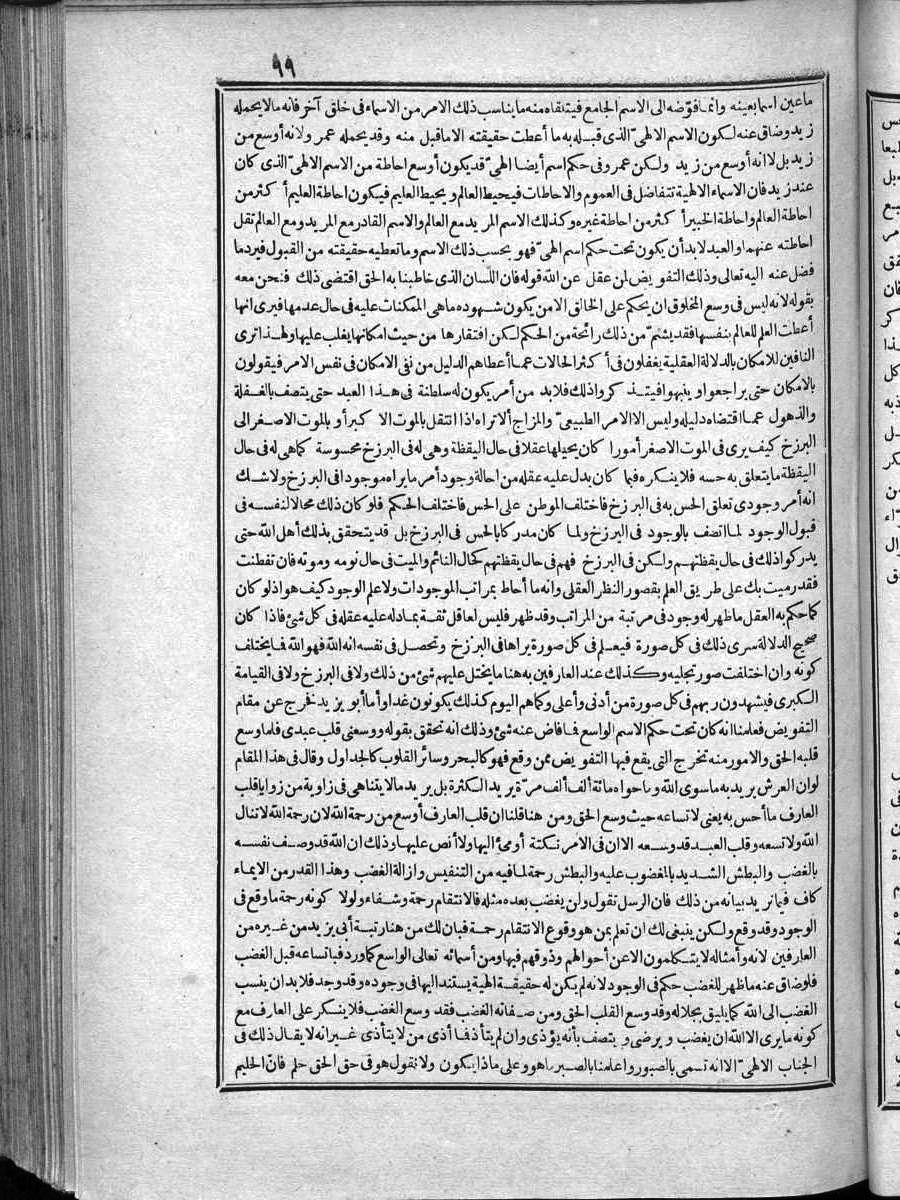 ٩٩
ما عين اسما بعينه وانما فوّضه الى الاسم الجامع فيتلقاه منه ما يناسب ذلك الامر من الاسماء فى خلق آخر فانه ما لا يحمله
زيد وضاق عنه لكون الاسم الالهىّ الذى قبله به ما أعطت حقيقته الا ما قبل منه وقد يحمله عمر ولانه أوسع من
زيد بل لا انه أوسع من زيد ولكن عمر وفى حكم اسم أيضا الهىّ قد يكون أوسع احاطة من الاسم الالهىّ الذى كان
عند زيد فان الاسماء الالهية تتفاضل فى العموم والاحاطات فيحيط العالم ويحيط العليم فيكون احاطة العليم أكثر من
احاطة العالم واحاطة الخبير أكثر من احاطة غيره وكذلك الاسم المريد مع العالم والاسم القادر مع المريد ومع العالم تقل
احاطته عنهما والعبد لابد أن يكون تحت حكم اسم الهىّ فهو بحسب ذلك الاسم وما تعطيه حقيقته من القبول فيرد ما
فضل عنه اليه تعالى وذلك التفويض لمن عقل عن الله قوله فان اللسان الذى خاطبنا به الحق اقتضى ذلك فنحن معه
بقوله لانه ليس فى وسع المخلوق ان يحكم على الخالق الا من يكون شهوده ما هى الممكنات عليه فى حال عدمها فيرى انها
أعطت العلم للعالم بنفسها فقد يشمّ من ذلك رائحة من الحكم لكن افتقارها من حيث امكانها يغلب عليها ولهذا ترى
النافين للامكان بالدلالة العقلية يغفلون فى أكثر الحالات عما أعطاهم الدليل من نفى الامكان فى نفس الامر فيقولون
بالامكان حتى يراجعوا وينبهوا فيتذكروا ذلك فلابد من أمر يكون له سلطنة فى هذا العبد حتى يتصف بالغفلة
والذهول عما اقتضاه دليله وليس الا الامر الطبيعىّ والمزاج ألا تراه اذا انتقل بالموت الاكبر أو بالموت الاصغر الى
البرزخ كيف يرى فى الموت الاصغر أمورا كان يحيلها عقلا فى حال اليقظة وهى له فى البرزخ محسوسة كما هى له فى حال
اليقظة ما يتعلق به حسه فلا ينكره فيما كان يدل عليه عقله من احالة وجود أمر ما يراه موجودا فى البرزخ ولا شك
انه أمر وجودى تعلق الحس به فى البرزخ فاختلف الموطن على الحس فاختلف الحكم فلو كان ذلك محالا لنفسه فى
قبول الوجود لما اتصف بالوجود فى البرزخ ولما كان مدركا بالحس فى البرزخ بل قد يتحقق بذلك أهل الله حتى
يدركوا ذلك فى حال يقظتهم ولكن فى البرزخ فهم فى حال يقظتهم كحال النائم والميت فى حال نومه وموته فان تفطنت
فقد رميت بك على طريق العلم بقصور النظر العقلى وانه ما أحاط بمراتب الموجودات ولا علم الوجود كيف هو اذ لو كان
كما حكم به العقل ما ظهر له وجود فى مرتبة من المراتب وقد ظهر فليس لعاقل ثقة بما دله عليه عقله فى كل شئ فاذا كان
صحيح الدلالة سرى ذلك فى كل صورة فيعلم فى كل صورة يراها فى البرزخ وتحصل فى نفسه انه الله فهو الله فما يختلف
كونه وان اختلفت صور تجليه وكذلك عند العارفين به هنا ما يختل عليهم شئ من ذلك ولا فى البرزخ ولا فى القيامة
الكبرى فيشهدون ربهم فى كل صورة من أدنى وأعلى وكما هم اليوم كذلك يكونون غدا وأما أبو يزيد فخرج عن مقام
التفويض فعلمنا انه كان تحت حكم الاسم الواسع فما فاض عنه شئ وذلك انه تحقق بقوله ووسعنى قلب عبدى فلما وسع
قلبه الحق والامور منه تخرج التى يقع فيها التفويض ممن وقع فهو كالبحر وسائر القلوب كالجداول وقال فى هذا المقام
لو ان العرش يريد به ما سوى الله وما حواه مائة ألف ألف مرّة يريد الكثرة بل يريد ما لا يتناهى فى زاوية من زوايا قلب
العارف ما أحس به يعنى لاتساعه حيث وسع الحق ومن هنا قلنا ان قلب العارف أوسع من رحمة الله لان رحمة الله لا تنال
الله ولا تسعه وقلب العبد قد وسعه الا ان فى الامر نكتة أومئ اليها ولا أنص عليها وذلك ان الله قد وصف نفسه
بالغضب والبطش الشديد بالمغضوب عليه والبطش رحمة لما فيه من التنفيس وازالة الغضب وهذا القدر من الايماء
كاف فيما نريد بيانه من ذلك فان الرسل تقول ولن يغضب بعده مثله فالانتقام رحمة وشفاء ولولا كونه رحمة ما وقع فى
الوجود وقد وقع ولكن ينبغى لك ان تعلم بمن هو وقوع الانتقام رحمة فبان لك من هنا رتبة أبى يزيد من غيره من
العارفين لانه وأمثاله لا يتكلمون الا عن أحوالهم وذوقهم فيها ومن أسمائه تعالى الواسع كما ورد فباتساعه قبل الغضب
فلو ضاق عنه ما ظهر للغضب حكم فى الوجود لانه لم يكن له حقيقة الهية يستند اليها فى وجوده وقد وجد فلابد ان ينسب
الغضب الى الله كما يليق بجلاله وقد وسع القلب الحق ومن صفاته الغضب فقد وسع الغضب فلا ينكر على العارف مع
كونه ما يرى الا الله ان يغضب ويرضى ويتصف بأنه يؤذى وان لم يتأذ فما أذى من لا يتأذى غير انه لا يقال ذلك فى
الجناب الالهىّ الا انه تسمى بالصبور واعلمنا بالصبر ما هو وعلى ماذا يكون ولا نقول هو فى حق الحق حلم فان الحليم